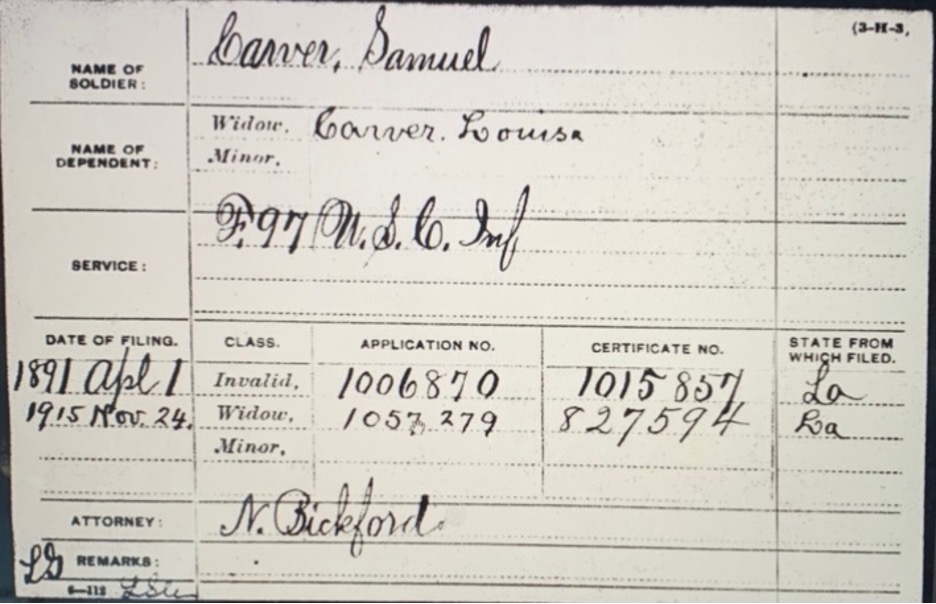 (3-H-3,
NAME OF SOLDIER: Carver, Samuel
NAME OF DEPENDENT: Widow, Carver. Louisa
Minor,
SERVICE: F. 97 U.S.C. Inf
DATE OF FILING. CLASS. APPLICATION NO. CERTIFICATE NO. STATE FROM WHICH FILED.
1891 Apl 1 Invalid, 1006870 1015857 La
1915 Nov. 24. Widow, 1057279 827594 La
Minor,
ATTORNEY: N. Bickford.
REMARKS:
6—112